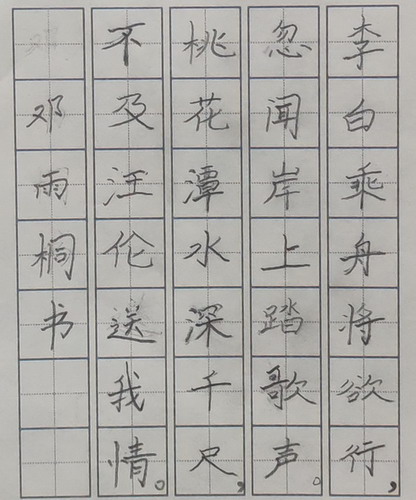 李白乘舟将欲行，
忽闻岸上踏歌声。
桃花潭水深千尺，
不及汪伦送我情。
邓雨桐书